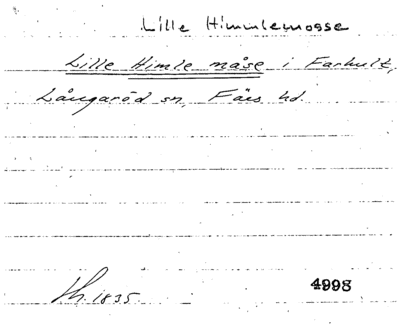 Lille Himmlemosse
Lille Himle måse i Farhult,
Långaröd sn, Färs hd.
Th. 1835.
4998